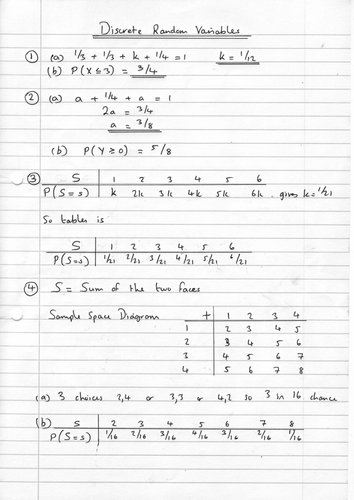 Discrete Random Variables
① (a) 1/3 + 1/3 + k + 1/4 = 1 k = 1/12
(b) P(X ≤ 3) = 3/4
② (a) a + 1/4 + a = 1
2a = 3/4
a = 3/8
(b) P(Y ≥ 0) = 5/8
③ S 1 2 3 4 5 6
P(S=s) k 2k 3k 4k 5k 6k . gives k = 1/21
So tables is
S 1 2 3 4 5 6
P(S=s) 1/21 2/21 3/21 4/21 5/21 6/21
④ S = Sum of the two faces
Sample Space Diagram + 1 2 3 4
1 2 3 4 5
2 3 4 5 6
3 4 5 6 7
4 5 6 7 8
(a) 3 choices 2,4 or 3,3 or 4,2 so 3 in 16 chance
(b) S 2 3 4 5 6 7 8
P(S=s) 1/16 2/16 3/16 4/16 3/16 2/16 1/16